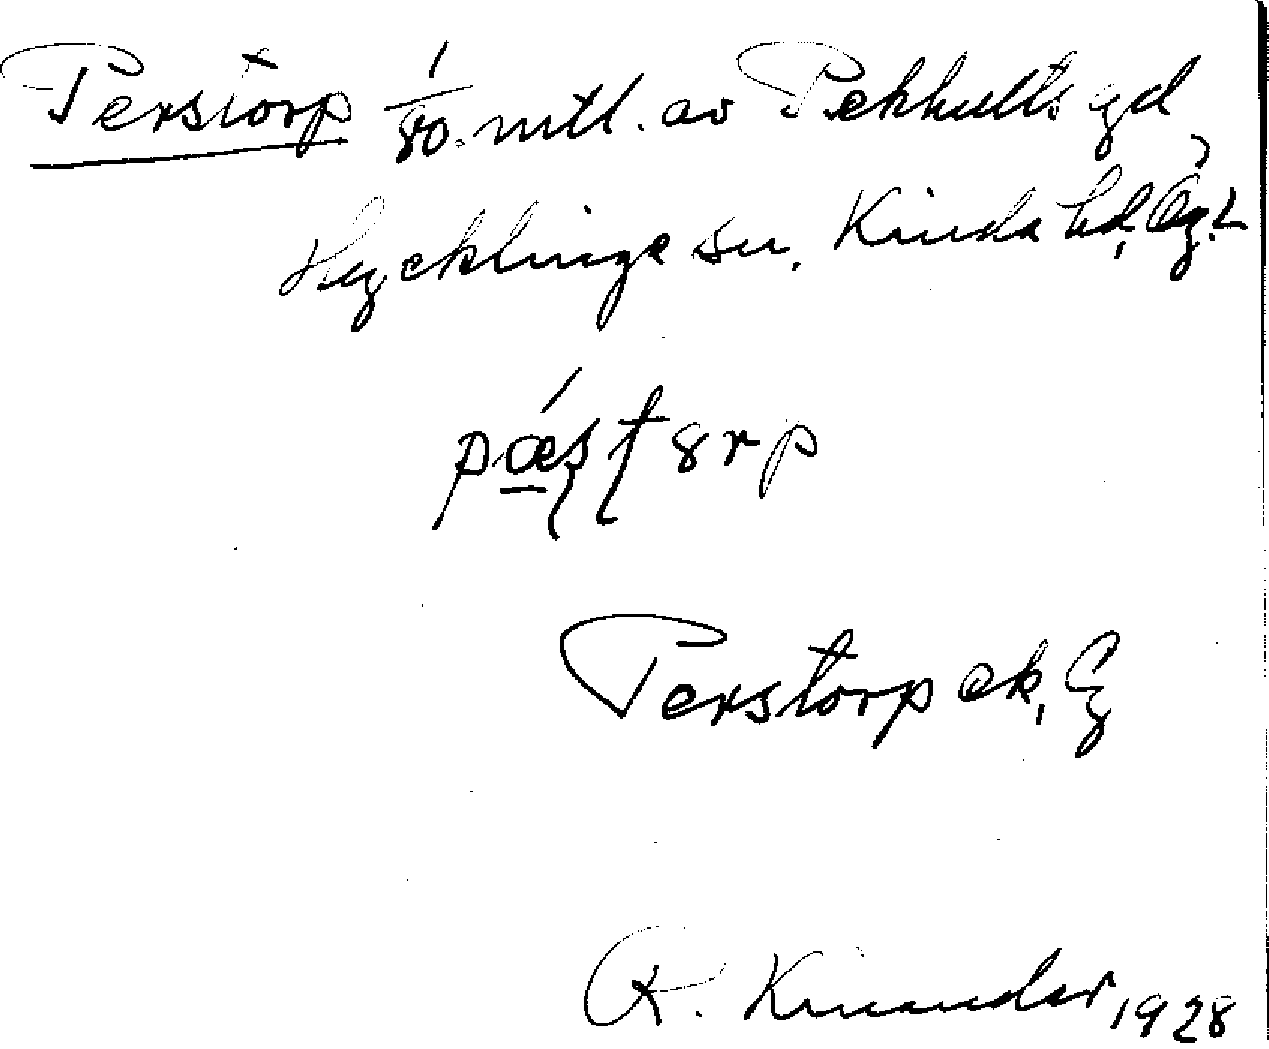 Perstorp 1/80 mtl. av Pekhults gd,
Hycklinge sn, Kinda hd, Ög.L
pǽ̱star̥p
Perstorp ek,
R. Kinander, 1928